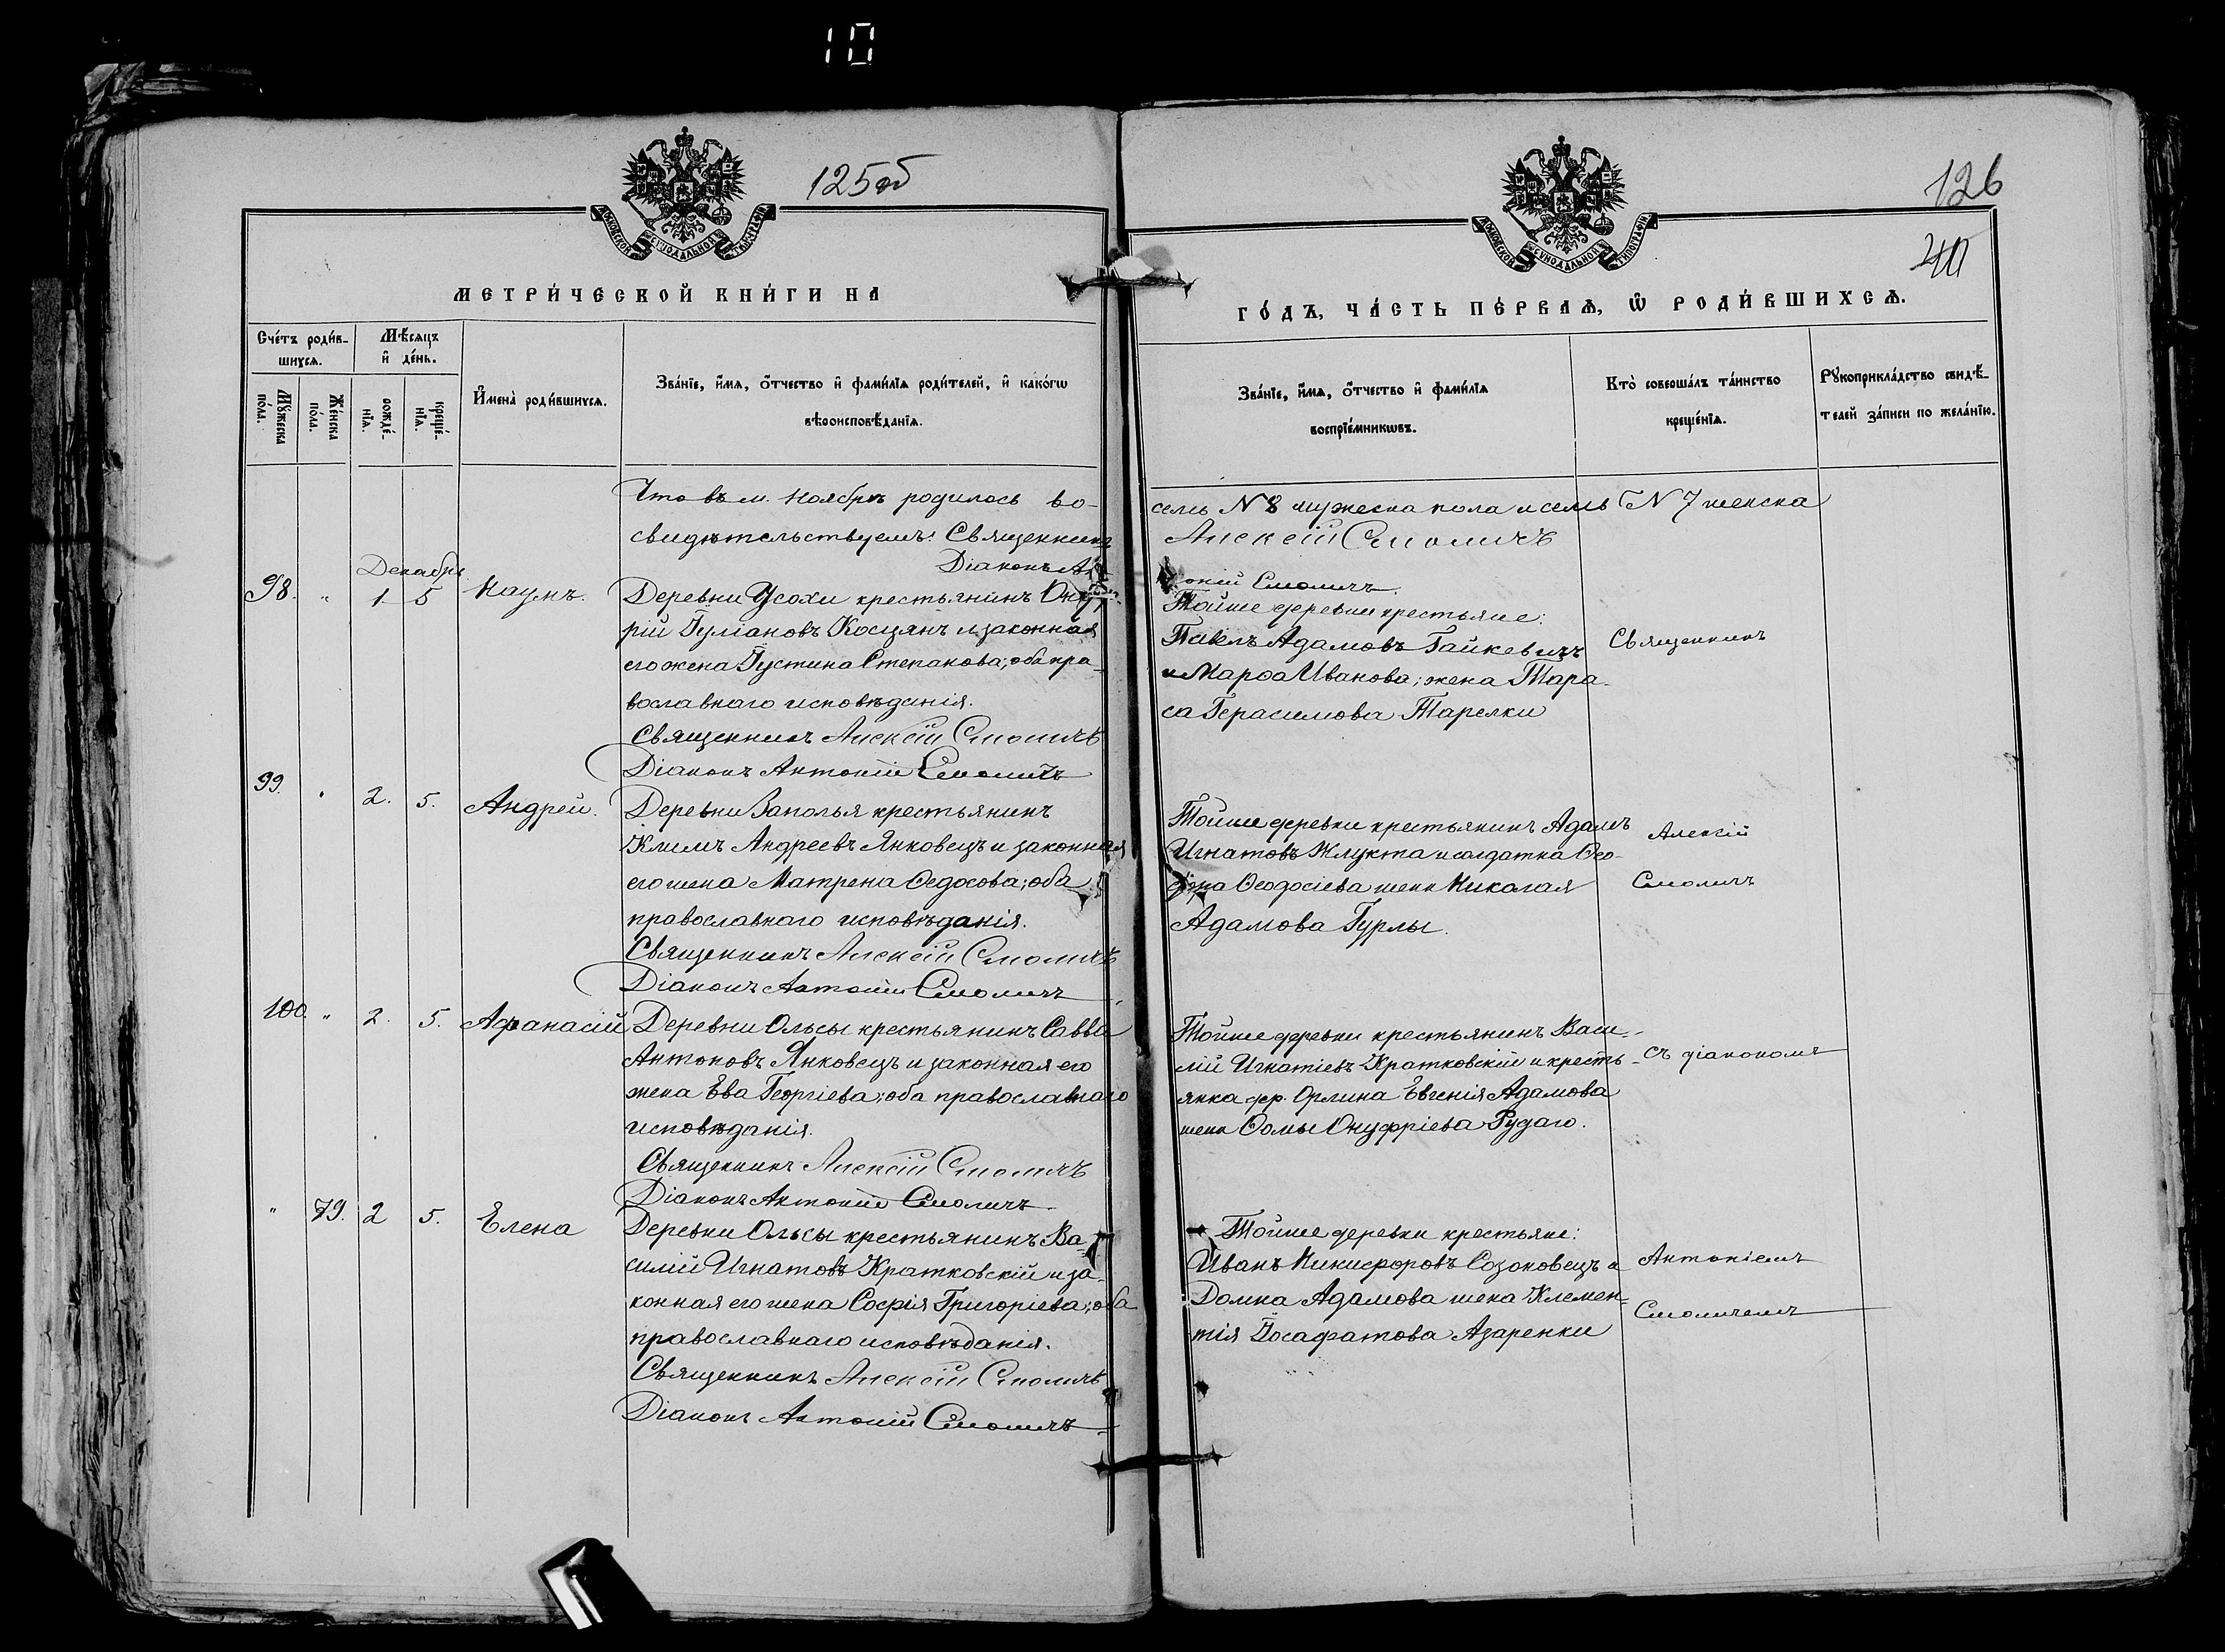 10
125об
МОСКОВСКОЙ СУНОДАЛЬНОЙ ТИПОГРАФІИ
МЕТРИ́ЧЕСКОЙ КНИ́ГИ НА
Сче́тъ роди́в-
шихсѧ.
Мѣ́сѧцъ
и҆ де́нь.
Мꙋ́жеска
по́ла.
Же́нска
по́ла.
рожде́-
нїѧ.
креще́-
нїѧ.
И҆мена̀ роди́вшихсѧ.
Зва́нїе, и҆́мѧ, ѻ҆́тчество и҆ фами́лїѧ роди́телей, и҆ како́гѡ
вѣроисповѣ́данїѧ.
Что въ м. Ноябрѣ родилось во-
свидѣтельствуемъ: Священникъ
Діаконъ Ан-
Декабрь
98. " 1 5 Наумъ. Деревни Усохи крестьянинъ Онуф-
рій Іуліановъ Косцянъ и законная
его жена Іустина Степанова; оба пра-
вославнаго исповѣданія.
Священникъ Алексій Смоличъ
Діаконъ Антоній Смоличъ
99. " 2. 5. Андрей. Деревни Заполья крестьянинъ
Климъ Андреевъ Янковецъ и законная
его жена Матрена Ѳедосова; оба
православнаго исповѣданія.
Священникъ Алексій Смоличъ
Діаконъ Антоній Смоличъ
100. " 2. 5. Афанасій Деревни Ольсы крестьянинъ Савва
Антоновъ Янковецъ и законная его
жена Ева Георгіева; оба православнаго
исповѣданія.
Священникъ Алексій Смоличъ
Діаконъ Антоній Смоличъ
" 79. 2 5. Елена Деревни Ольсы крестьянинъ Ва-
силій Игнатовъ Кратковскій и за-
конная его жена Софія Григоріева; оба
православнаго исповѣданія.
Священникъ Алексій Смоличъ
Діаконъ Антоній Смоличъ
126
МОСКОВСКОЙ СУНОДАЛЬНОЙ ТИПОГРАФІИ
ГО́ДЪ, ЧА́СТЬ ПЕ́РВАѦ, Ѡ҆ РОДИ́ВШИХСѦ.
Зва́нїе, и҆́мѧ, ѻ҆́тчество и҆ фами́лїѧ
воспрїе́мникѡвъ.
Кто̀ соверша́лъ та́инство
креще́нїѧ.
Рꙋкоприкла́дство свидѣ́-
телей за́писи по жела́нїю.
семь N 8 мужеска пола и семь N 7 женска
Алексій Смоличъ
тоній Смоличъ.
Тойже деревни крестьяне:
Павелъ Адамовъ Гайкевичъ Священникъ
и Марѳа Иванова; жена Тара-
са Герасимова Тарелки
Тойже деревни крестьянинъ Адамъ Алексій
Игнатовъ Жлукта и солдатка Ѳео-
фена Ѳеодосіева жена Николая Смоличъ
Адамова Гурлы.
Тойже деревни крестьянинъ Васи-
лій Игнатіевъ Кратковскій и кресть- съ діакономъ
янка дер. Орлина Евгенія Адамова
жена Ѳомы Онуфріева Рудаго.
Тойже деревни крестьяне:
Иванъ Никифоровъ Созоновецъ и Антоніемъ
Домна Адамова жена Клемен-
тія Іосафатова Азаренки Смоличемъ